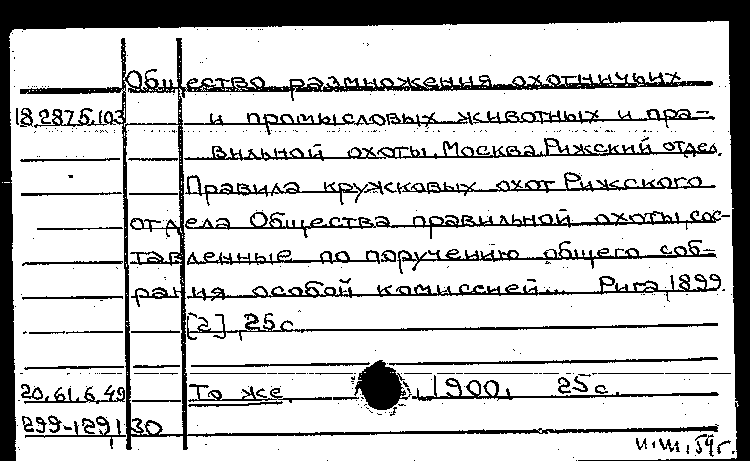 Общество размножения охотничьих
18.287.5.103 и промысловых животных и пра-
вильной охоты. Москва. Рижский отдел.
Правила кружковых охот Рижского
отдела Общества правильной охоты, сос-
тавленные по поручению общего соб-
рания особой комиссией... Рига, 1899
[2], 25 с.
20.61.6.49 То же. , 1900, 25 с.
299-1291 30
54 г.